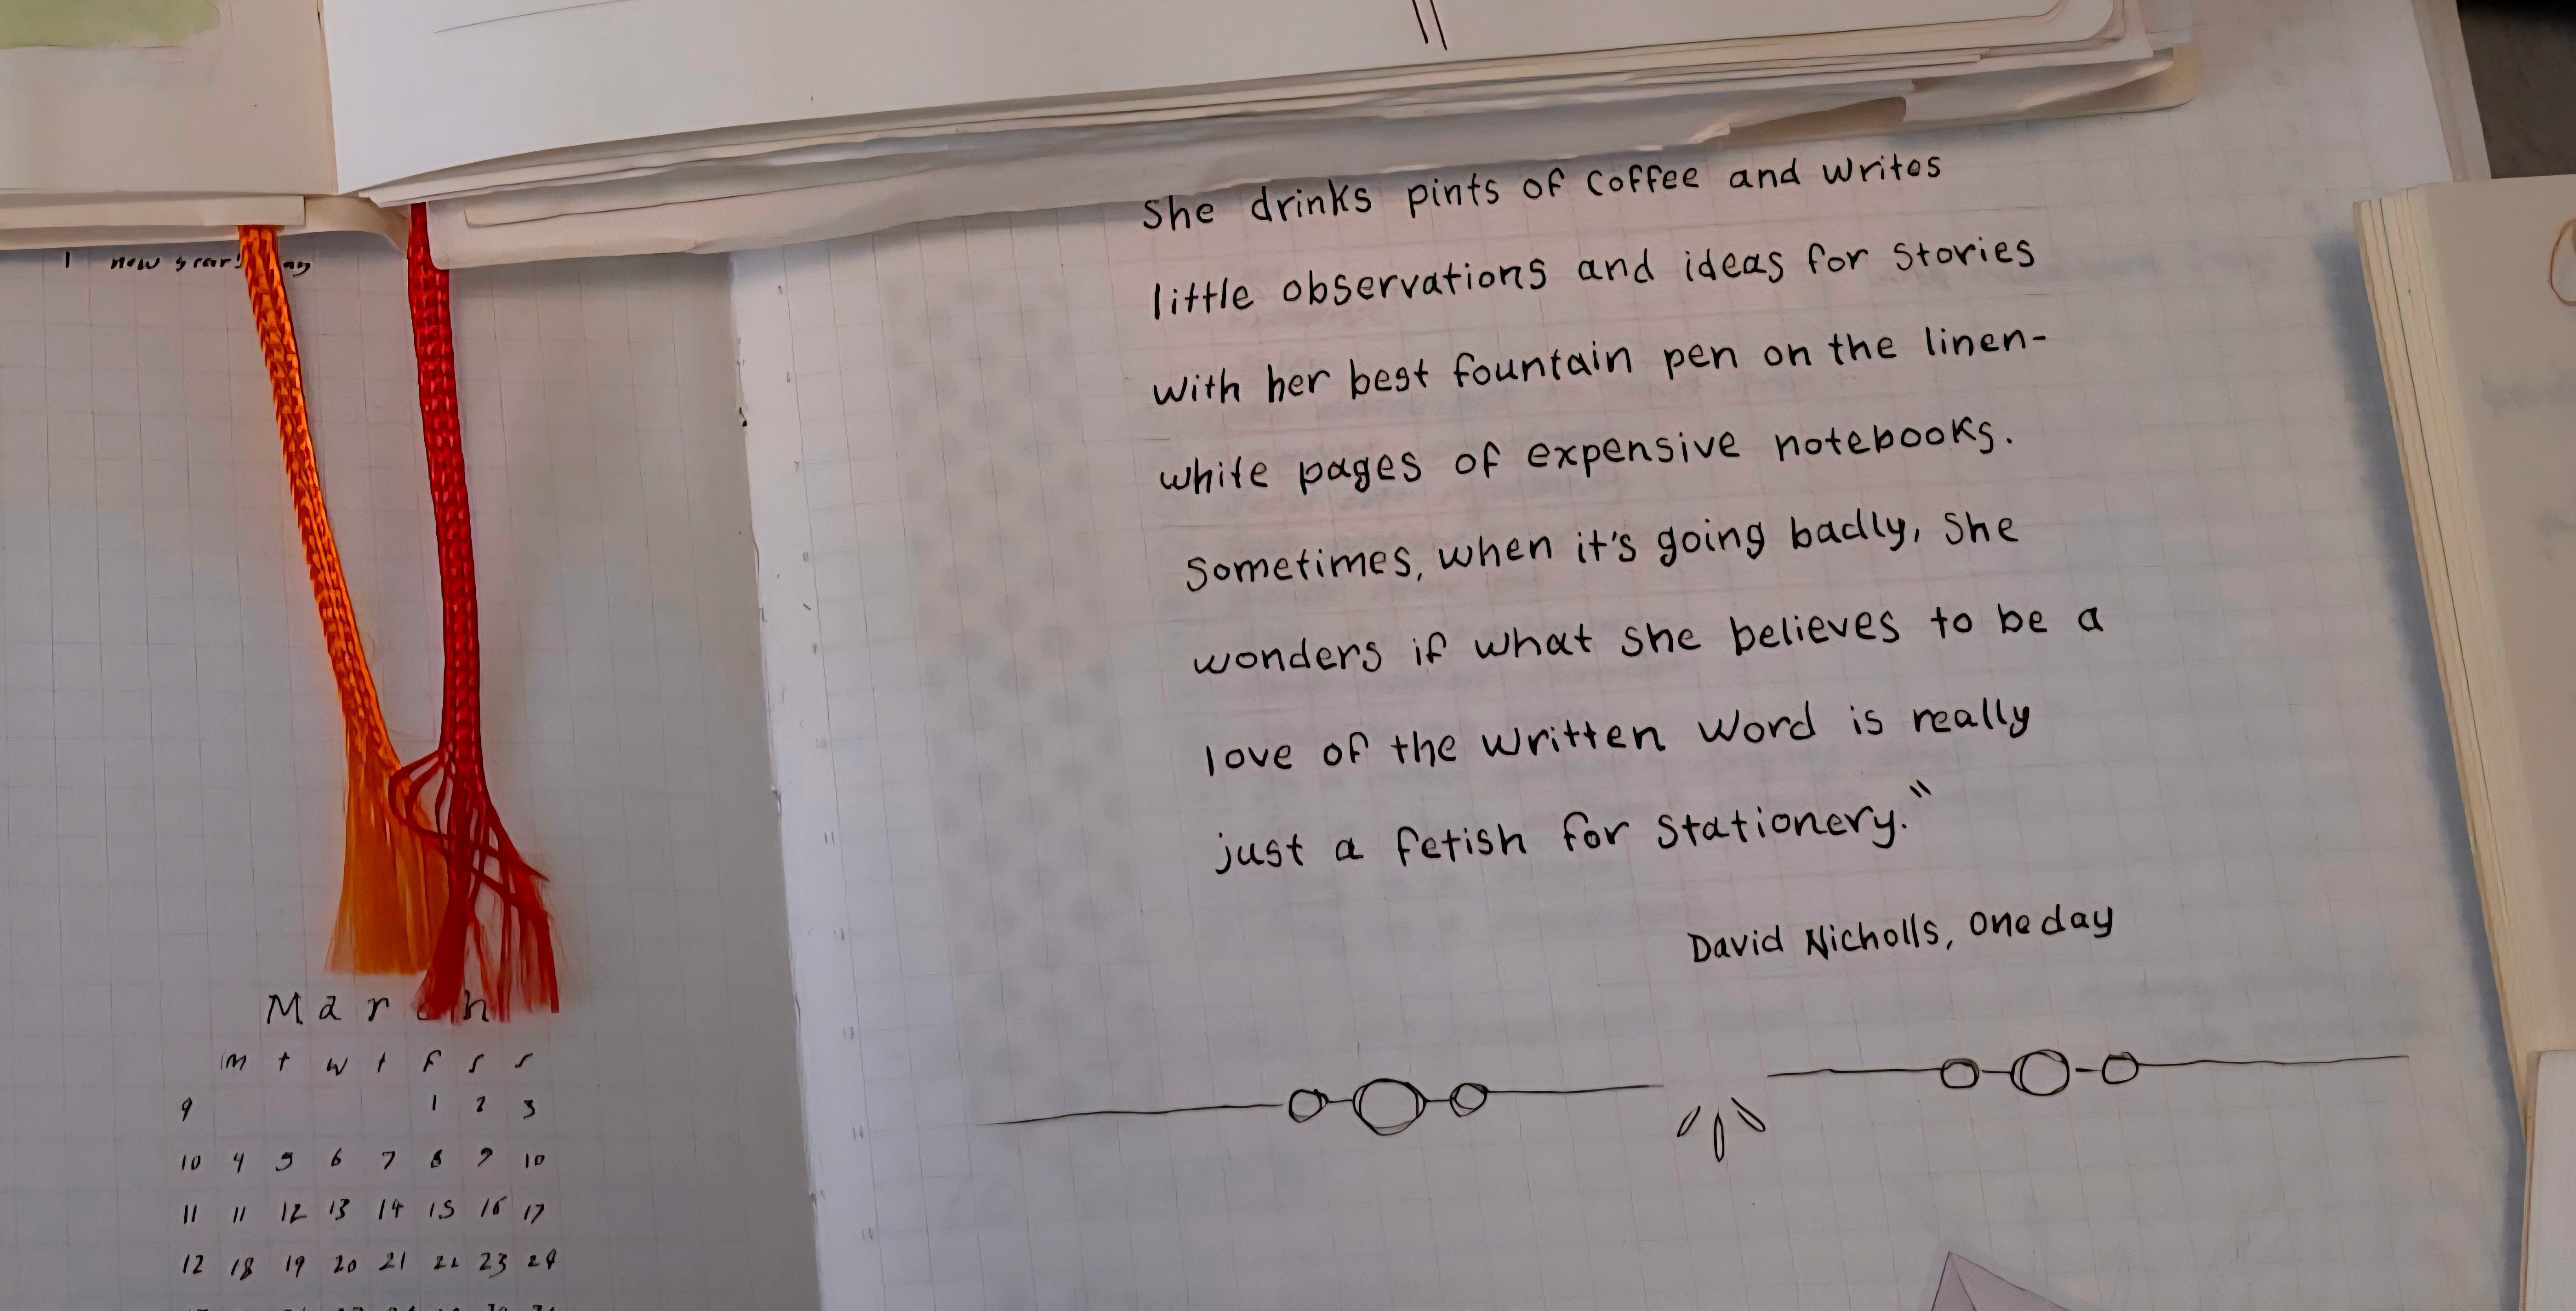 1 new year's
March
m t w t f s s
9 1 2 3
10 4 5 6 7 8 9 10
11 11 12 13 14 15 16 17
12 18 19 20 21 22 23 24
She drinks pints of coffee and writes
little observations and ideas for stories
with her best fountain pen on the linen-
white pages of expensive notebooks.
Sometimes, when it's going badly, she
wonders if what she believes to be a
love of the written word is really
just a fetish for stationery."
David Nicholls, One day